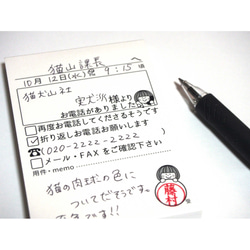 猫山課長 へ
10月12日(水) 9:15 頃
猫犬山社
実犬派様より
お電話がありました
□再度お電話してくださるそうです
☑折り返しお電話お願いします
☎(020-2222-2222)
□メール・FAX をご確認下さい
用件・memo
猫の肉球の色に
ついてだそうです。
藤村